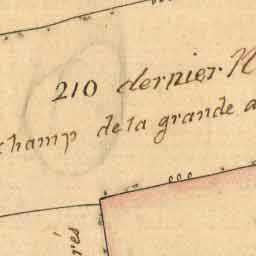 210 dernier
champ de la grande